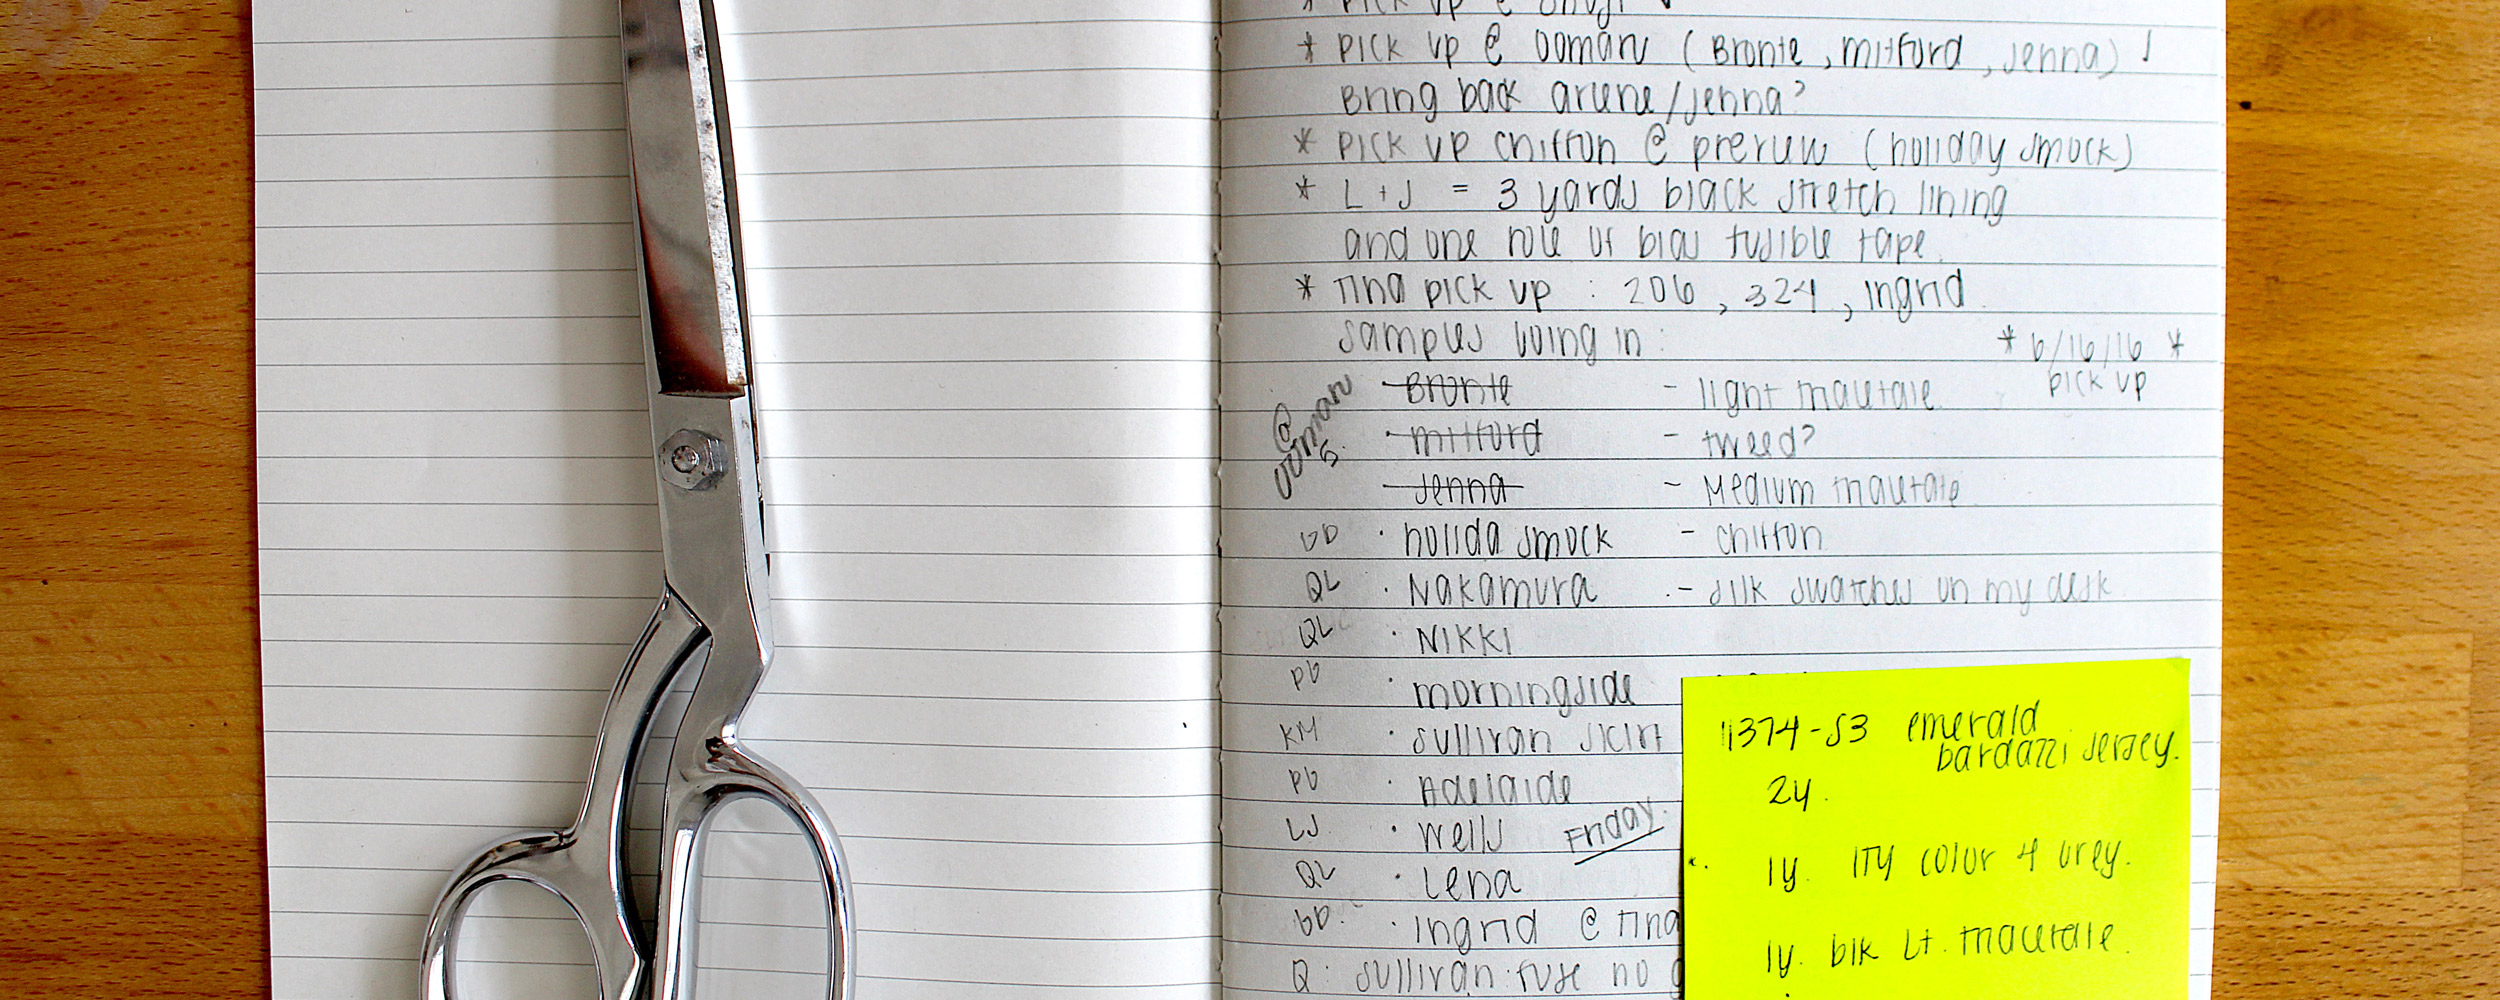 * pick up @
* pick up @ Oomaru (Bronte, mitford, Jenna) ✓
Bring back arlene/Jenna?
* pick up chiffon @ preview (holiday smock)
* L + J = 3 yards black stretch lining
and one role of bias fusible tape.
* Tina pick up : 206, 324, Ingrid.
samples going in:
* 6/16/16 *
pick up
@ Oomaru
· Bronte - light
· mitford - tweed?
Jenna - Medium
GD · holida smock - chiffon
QL · Nakamura - silk swatches on my desk
QL · NIKKI
PG · morningside
KM · sullivan skirt
PG · Adelaide
LJ · wells Friday.
QL · Lena
GD. · Ingrid @ Tina
Q: sullivan: fuse no
11374-S3 emerald
bardazzi jersey.
2y.
1y. ITY color 4 grey.
1y. blk Lt.